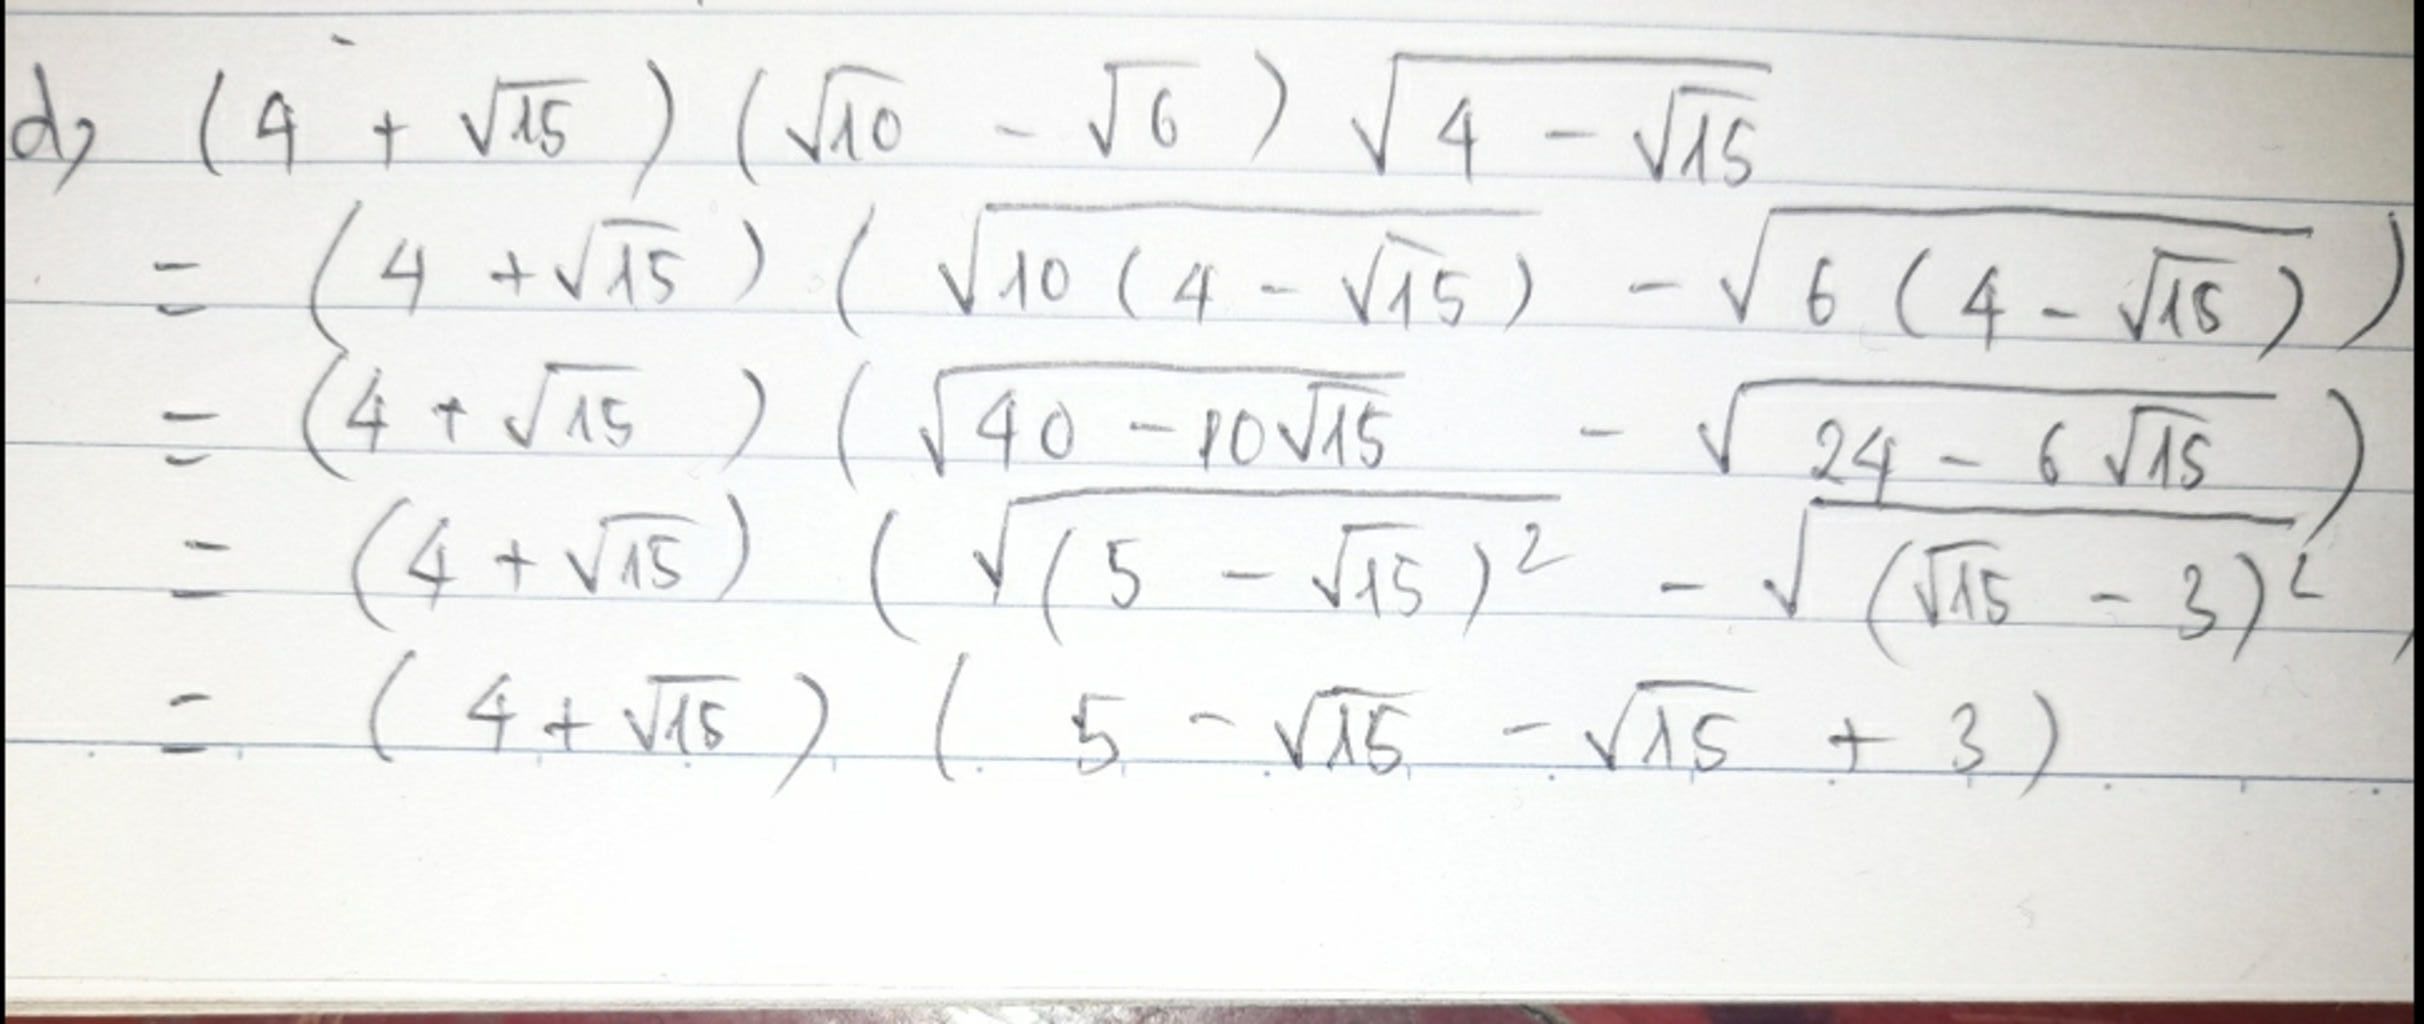 d, (4 + √15) (√10 - √6) √(4 - √15)
= (4 + √15) (√(10(4 - √15)) - √(6(4 - √15)))
= (4 + √15) (√(40 - 10√15) - √(24 - 6√15))
= (4 + √15) (√((5 - √15)²) - √((√15 - 3)²))
= (4 + √15) (5 - √15 - √15 + 3)